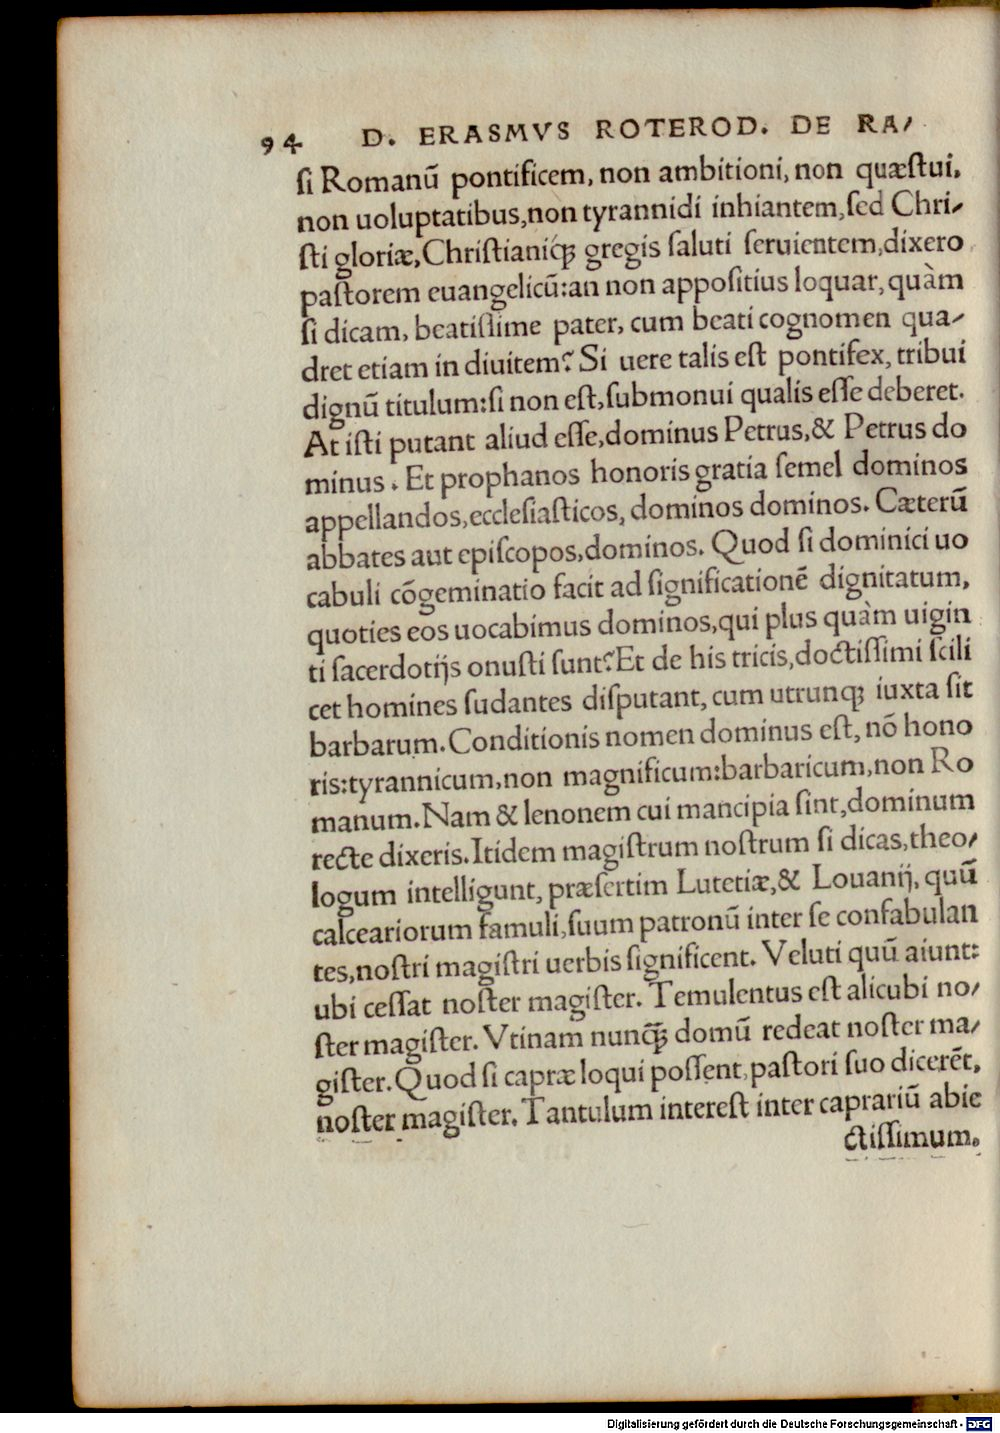 94 D. ERASMVS ROTEROD. DE RA/
ſi Romanū pontificem, non ambitioni, non quæſtui,
non uoluptatibus,non tyrannidi inhiantem,ſed Chri/
ſti gloriæ,Chriſtianiq́ꝫ gregis ſaluti ſeruientem,dixero
paſtorem euangelicū:an non appoſitius loquar,quàm
ſi dicam, beatiſſime pater, cum beati cognomen qua/
dret etiam in diuitem? Si uere talis eſt pontifex, tribui
dignū titulum:ſi non eſt,ſubmonui qualis eſſe deberet.
At iſti putant aliud eſſe,dominus Petrus,& Petrus do
minus. Et prophanos honoris gratia ſemel dominos
appellandos,eccleſiaſticos, dominos dominos. Cæterū
abbates aut epiſcopos,dominos. Quod ſi dominici uo
cabuli cōgeminatio facit ad ſignificationē dignitatum,
quoties eos uocabimus dominos,qui plus quàm uigin
ti ſacerdotijs onuſti ſunt? Et de his tricis,doctiſſimi ſcili
cet homines ſudantes diſputant, cum utrunqꝫ iuxta ſit
barbarum. Conditionis nomen dominus eſt, nō hono
ris:tyrannicum,non magnificum:barbaricum,non Ro
manum. Nam & lenonem cui mancipia ſint,dominum
recte dixeris. Itidem magiſtrum noſtrum ſi dicas,theo/
logum intelligunt, præſertim Lutetiæ,& Louanij, quū
calceariorum famuli,ſuum patronū inter ſe confabulan
tes,noſtri magiſtri uerbis ſignificent. Veluti quū aiunt:
ubi ceſſat noſter magiſter. Temulentus eſt alicubi no/
ſter magiſter. Vtinam nunq̄ꝫ domū redeat noſter ma/
giſter. Quod ſi capræ loqui poſſent,paſtori ſuo dicerēt,
noſter magiſter. Tantulum intereſt inter caprariū abie
ctiſſimum,
Digitalisierung gefördert durch die Deutsche Forschungsgemeinschaft - DFG